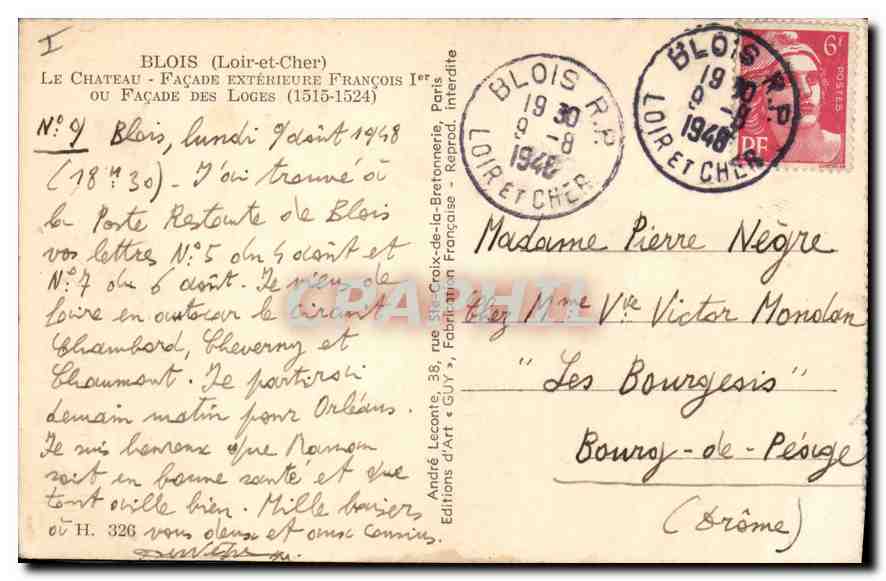 I
BLOIS (Loir-et-Cher)
LE CHATEAU - FAÇADE EXTÉRIEURE FRANÇOIS Ier
OU FAÇADE DES LOGES (1515-1524)
N° 9/ Blois, lundi 9 août 1948
(18 H 30) - J'ai trouvé à
la Poste Restante de Blois
vos lettres N° 5 du 4 août et
N° 7 du 6 août. Je viens de
faire en autocar le circuit
Chambord, Cheverny et
Chaumont. Je partirai
demain matin pour Orléans.
Je suis heureux que Maman
soit en bonne santé et que
tout aille bien. Mille baisers
à vous deux et aux cousins.
H. 326
André Leconte, 38, rue Ste-Croix-de-la-Bretonnerie, Paris
Editions d'Art « GUY », Fabrication Française - Reprod. interdite
BLOIS R.P.
19 30
9 -8
1948
LOIR ET CHER
BLOIS R.P.
19 30
9 -8
1948
LOIR ET CHER
6f
POSTES
RF
Madame Pierre Nègre
Chez Mme Vve Victor Mondan
"Les Bourgeois"
Bourg-de-Péage
(Drôme)
CPAPHIL